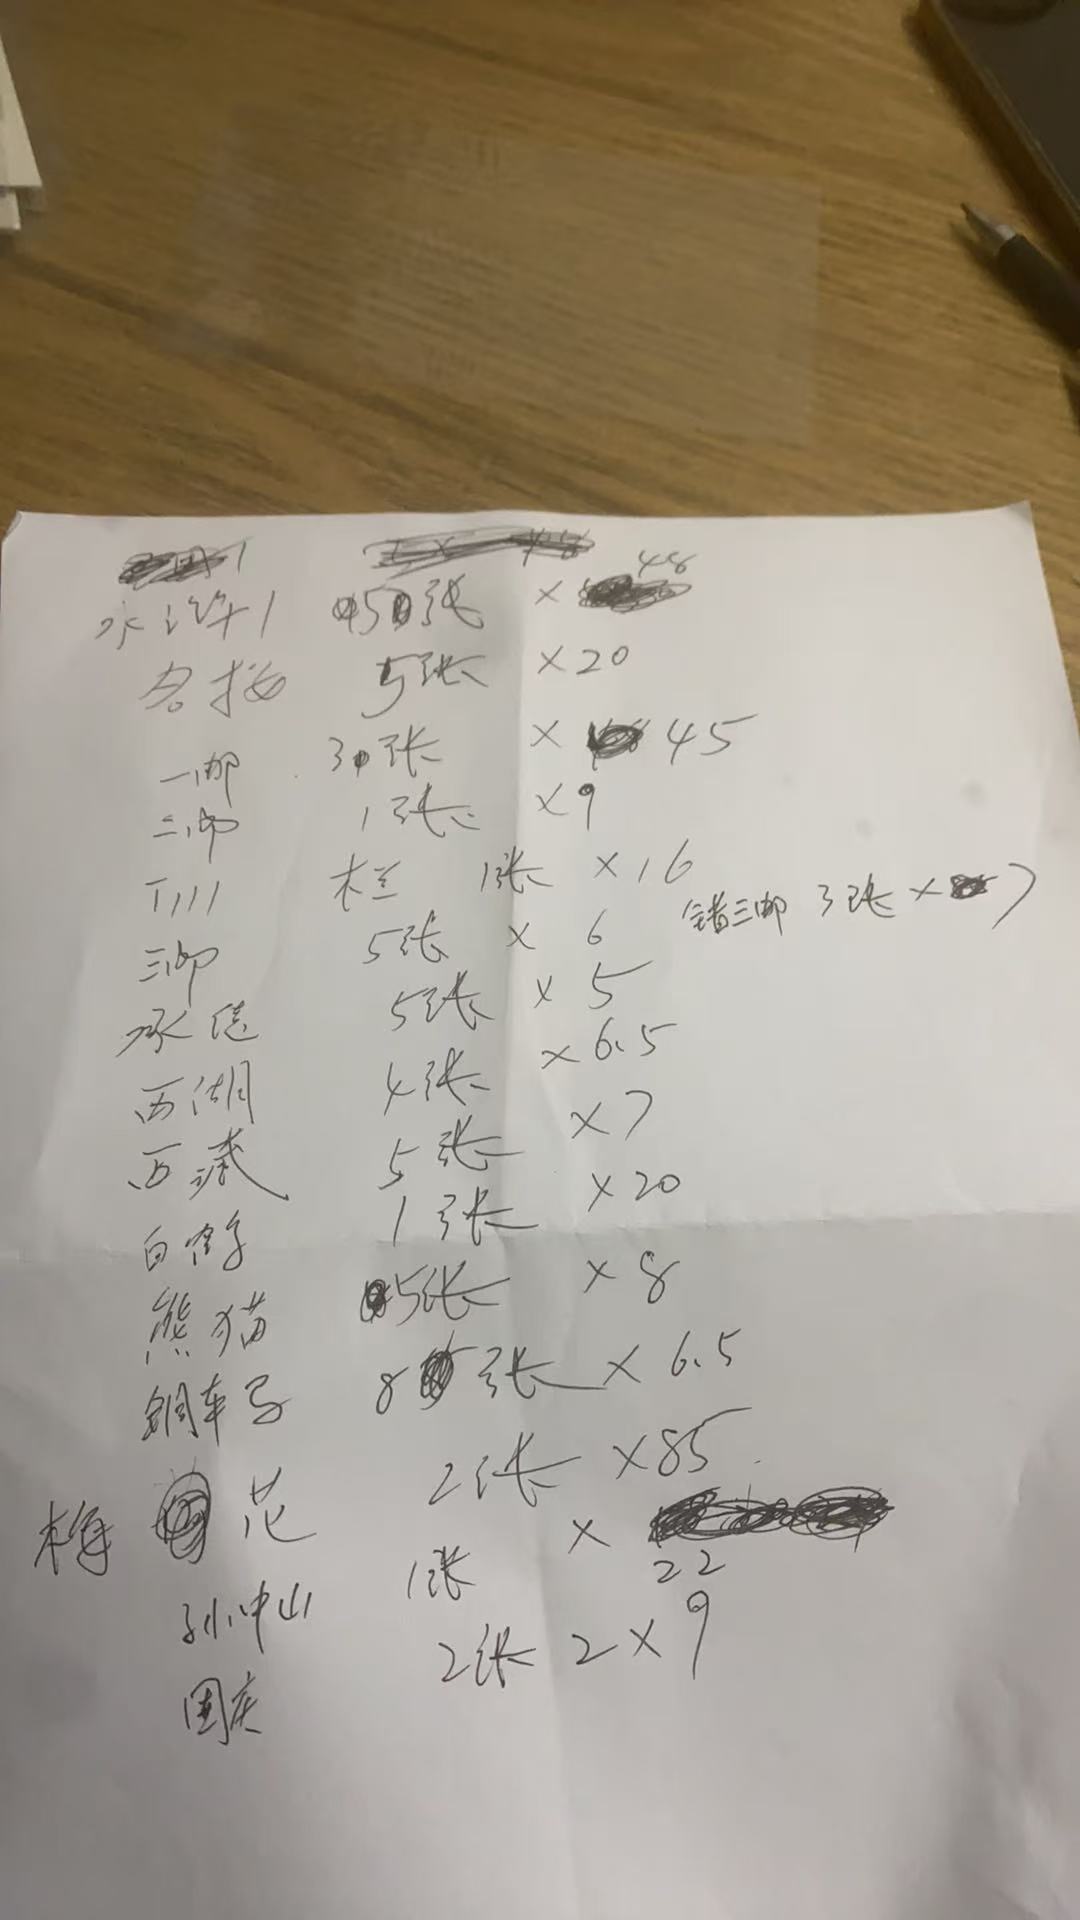 水浒1 5张 × 48
5张 ×20
一邮 3张 × 45
二邮 1张 ×9
T111 栏 1张 ×16
错三邮 3张 × 7
三邮 5张 × 6
承德 5张 × 5
西湖 4张 ×6.5
西藏 5张 ×7
白鹤 1张 ×20
熊猫 5张 ×8
铜车马 8张 × 6.5
梅花 2张 ×85
孙中山 1张 × 22
国庆 2张 2×9